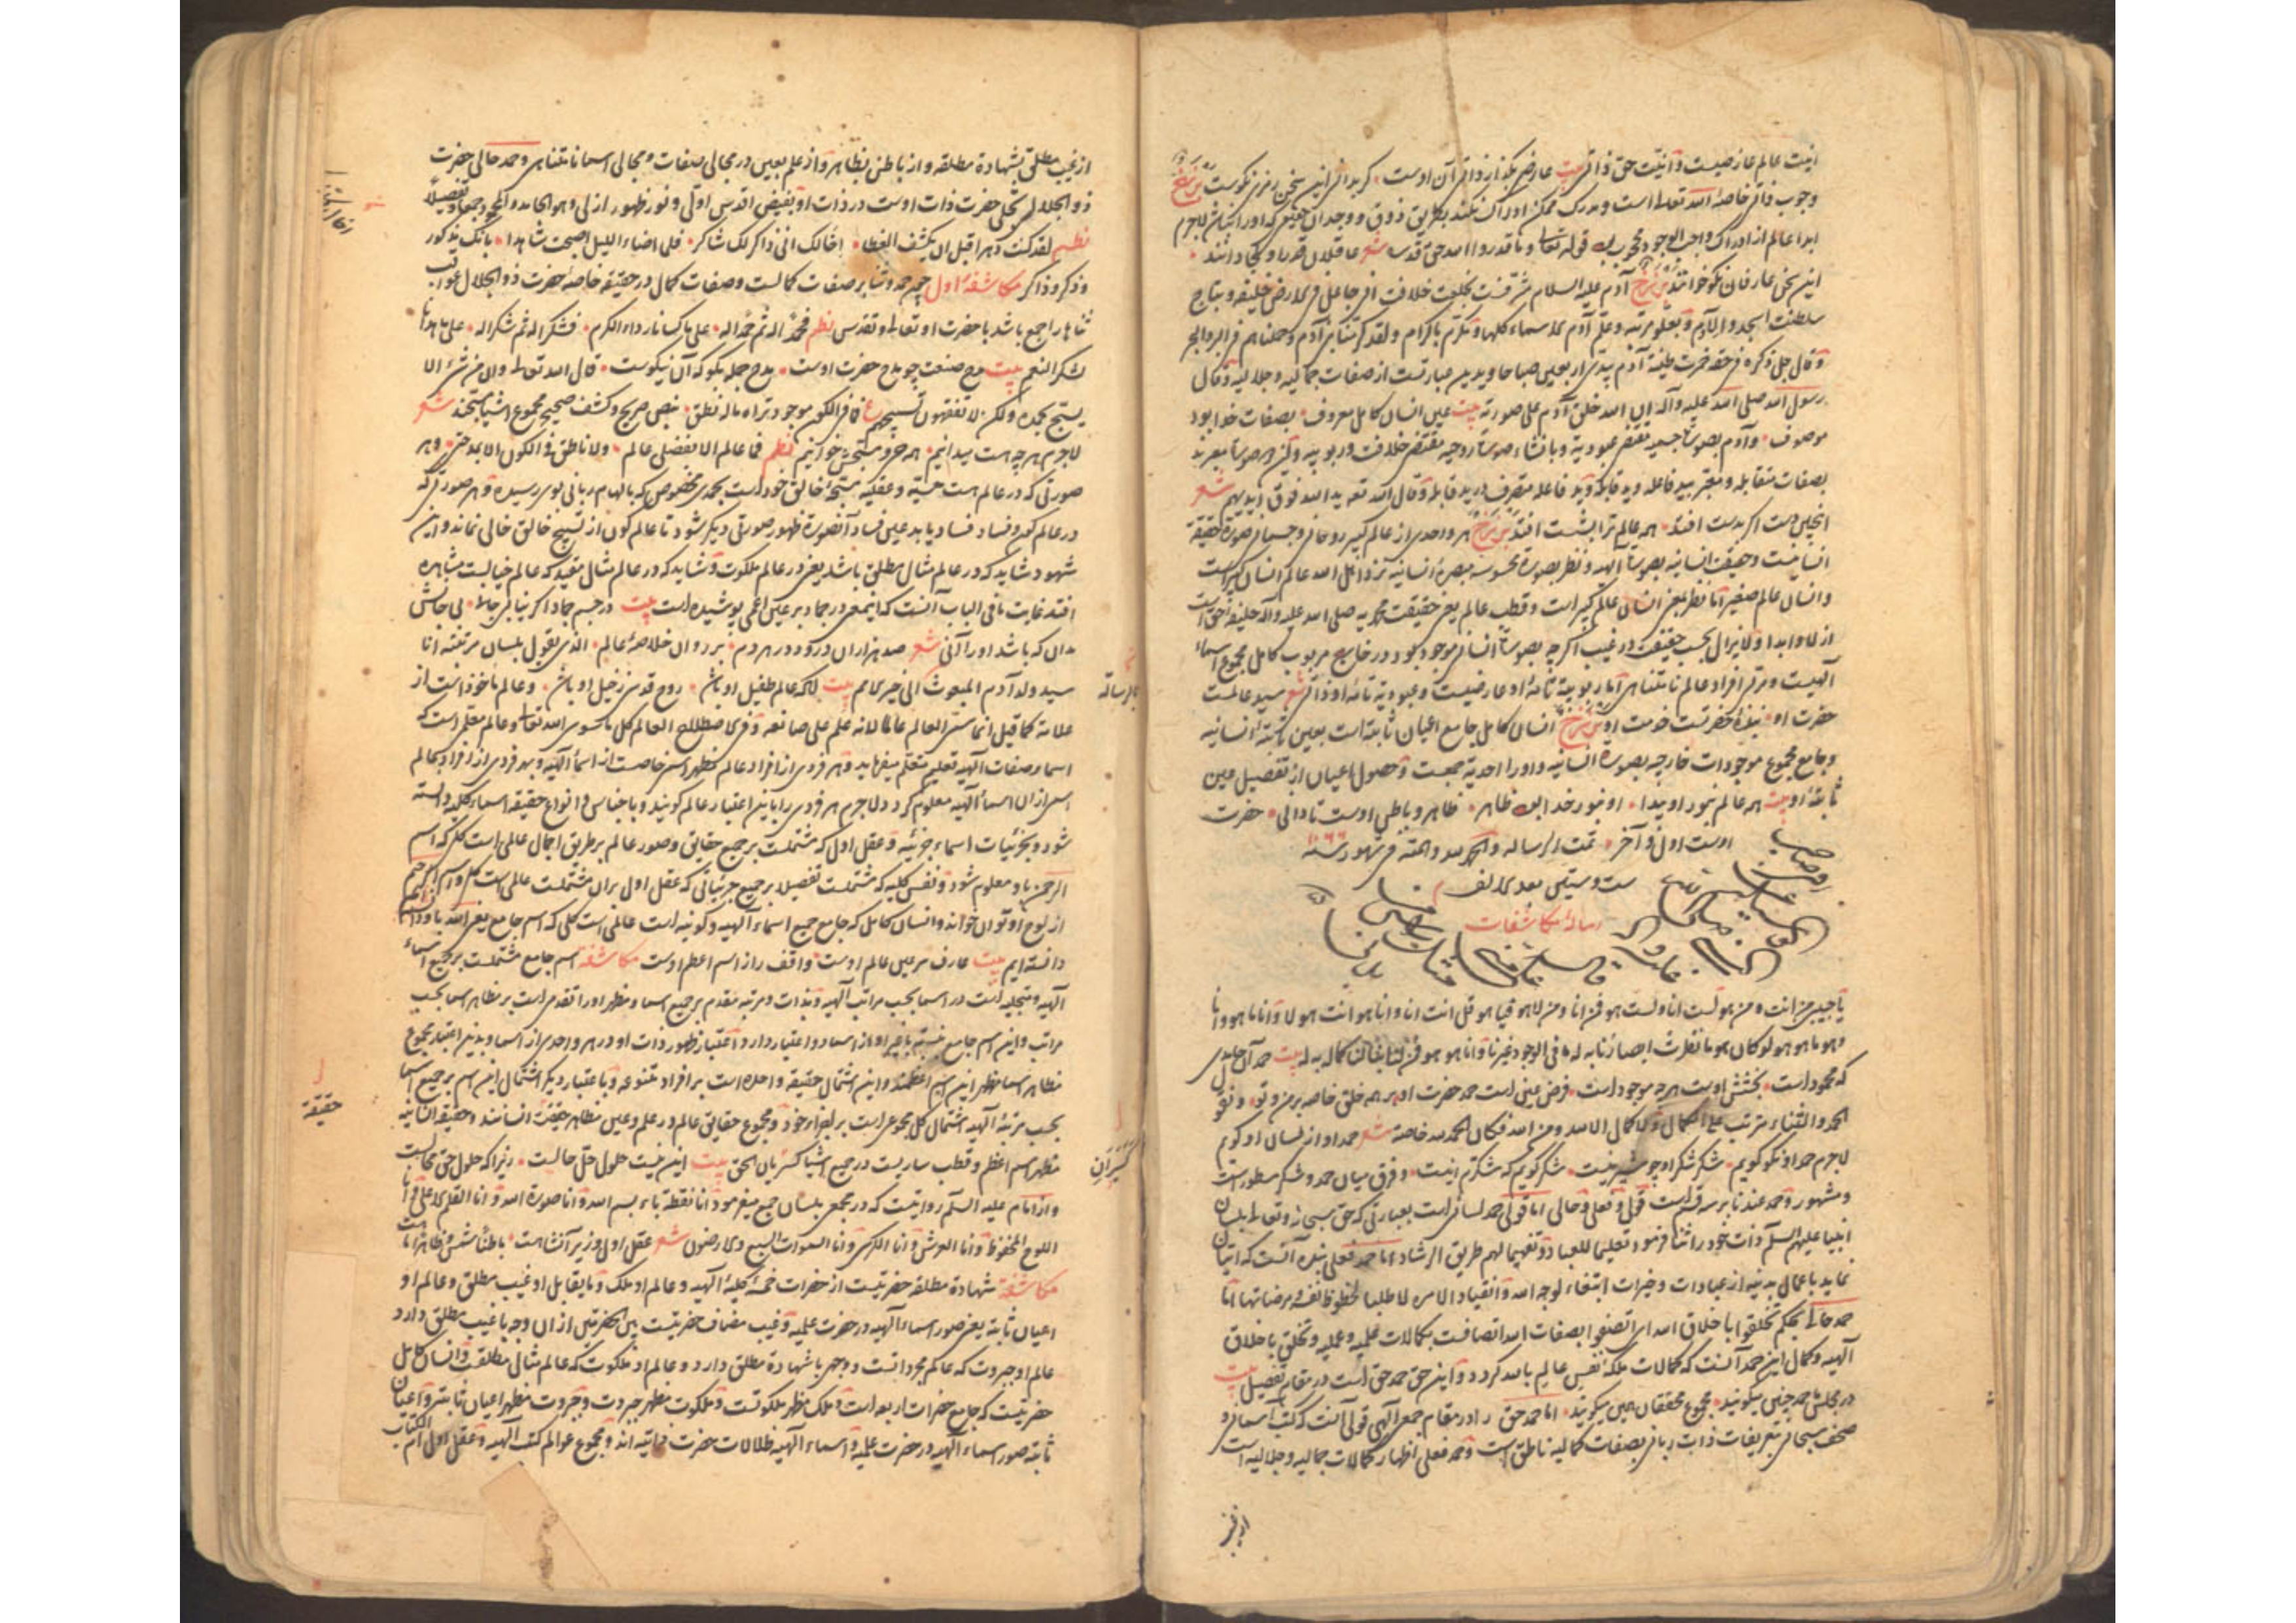 انیت عالم عارضیست و انیت حق ذاتی بیت عارضی بگذار ذاتی آن اوست
وجوب ذاتی خاصهٔ الله تعالی است و مدرک ممکن ادراک نکند بطریق ذوق و وجدان
ابدا عالم از ادراک واجب الوجود محجوب قوله تعالی و ما قدروا الله حق قدره شعر عاقلان قدر او کجا دانند
این سخن عارفان نکو خوانند برزخ آدم علیه السلام شرف بخلعت خلافت انی جاعل فی الارض خلیفه و بتاج
سلطنت اسجدوا لآدم و بعلو مرتبه و علم آدم الاسماء کلها و تکرم باکرام و لقد کرمنا بنی آدم و حملناهم فی البر و البحر
و قال جل ذکره فی حقه خمرت طینة آدم بیدی اربعین صباحا و یدین عبارتست از صفات جمالیه و جلالیه و قال
رسول الله صلی الله علیه و آله ان الله خلق آدم علی صورته بیت عین انسان کامل معروف بصفات خدا بود
موصوف و آدم بصورت جسمیه مقتضی عبودیة و بانشاء صورت روحیه مقتضی خلافت و ربوبیه
بصفات متقابله و معبر بید فاعله و ید قابله و ید فاعله متصرف در ید قابله و قال الله تعالی ید الله فوق ایدیهم شعر
اینچنین دست اگر بدست افتد همه عالم ترا بشست افتد برزخ هر واحدی از عالم کبیر روحانی و جسمانی صورة حقیقة
انسانیت و حقیقت انسانیه بصورت الهیه و نظر بصورة محسوسه مبصره انسانیه نزد اهل الله عالم انسان کبیر است
و انسان عالم صغیر اما نظر بمعنی انسان عالم کبیر است و قطب عالم یعنی حقیقت محمدیه صلی الله علیه و آله خلیفه حق است
ازلا و ابدا و لا یزال بحسب حقیقت در غیب اگرچه بصورت انسانی موجود بود در خارج مربوب کامل مجموع اسماء
الهیت و مربی افراد عالم نامتناهی اما ربوبیة تامهٔ او عارضیست و عبودیة تامه او ذاتی شعر سید عالمست
حضرت او بندهٔ حضرتست خدمت او برزخ انسان کامل جامع اعیان ثابته است بعین ثابتهٔ انسانیه
و جامع مجموع موجودات خارجیه بصورة انسانیه و او را احدیة جمعست و حصول اعیان از تفصیل عین
ثابتهٔ او بیت همه عالم بنور او پیدا او بنور خدا بود ظاهر ظاهر و باطن اوست تا دانی حضرت
اوست اول و آخر تمت الرساله و الحمد لله و المنه فی شهور سنه ۱۰۶۶
ست و ستین بعد الالف
رسالهٔ مکاشفات
یا حبیبی من انت و من هو لست انا و لست هو فمن انا و من لا هو فیا هو قل انت انا و انا هو انت هو لا و انا ما هو و انا
و هو ما هو هو لو کان هو ما نظرت ابصارنا به له ما فی الوجود غیرنا و انا هو هو فمن لنا بنا لنا کما له به له بیت حمد آن حامدی
که محمود است بخشش اوست هرچه موجود است فرض عینی است حمد حضرت او بر همه خلق خاصه بر من و تو و نقول
الحمد و الثناء مترتب علی الکمال و لا کمال الا لله و من الله فکان الحمد لله خاصة شعر حمد او از لسان او گویم
لاجرم حمد او نکو گویم شکر شکر او چو شیرینیست شکر گویم که شکرم اینست و فرق میان حمد و شکر مسطورست
و مشهور و حمد عند نا بر سه قسم است قولی و فعلی و حالی اما قولی حمد لسانی است بعبارتی که حق سبحانه و تعالی بلسان
انبیا علیهم السلم ذات خود را ثنا فرمود تعلیما للعباد و تفهیما لهم طریق الرشاد اما حمد فعلی بنده آنست که اتیان
نماید باعمال بدنیه از عبادات و خیرات ابتغاء لوجه الله و انقیادا لامره لا طلبا لحظوظ نفسه و مرضاتها اما
حمد حالی بحکم تخلقوا باخلاق الله ای اتصفوا بصفات الله اتصافست بکمالات علمیه و عملیه و تخلق باخلاق
الهیه و کمال این حمد آنست که کمالات ملکهٔ نفس عالم بالله گردد و این حق حمد حق است در مقام تفصیل بیت
در مجلس ما حمد چنین میگویند مجموع محققان همین میگویند اما حمد حق را در مقام جمع الهی قولی آنست که کتب آسمانی و
صحف سبحانی بتعریفات ذات ربانی بصفات کمالیه ناطق است و حمد فعلی اظهار کمالات جمالیه و جلالیه است
از غیب
از غیب مطلق بشهادة مطلقه و از باطن بظاهر و از علم بعین در مجالی صفات و مجالی اسماء نامتناهی و حمد حالی حضرت
ذو الجلال تجلی حضرت ذات اوست در ذات او بفیض اقدس اولی و نور ظهور ازلی و هو الحامد و المحمود جمعا و تفصیلا
نظم لقد کنت دهرا قبل ان یکشف الغطا اخالک انی ذاکر لک شاکر فلما اضاء اللیل اصبحت شاهدا بانک مذکور
و ذکر و ذاکر مکاشفهٔ اول چون حمد و ثنا بر صفات کمالست و صفات کمال در حقیقه خاصهٔ حضرت ذو الجلال عواقب
ثنا ها راجع باشد با حضرت او تعالی و تقدس نظم فحمدا له ثم حمدا له علی ما کسانا رداء الکرم فشکرا له ثم شکرا له علی ما هدانا
لشکر النعم بیت مدح صنعت چو مدح حضرت اوست مدح جمله بگو که آن نیکوست قال الله تعالی و ان من شیء الا
یسبح بحمده و لکن لا تفقهون تسبیحهم ع فما فی الکون موجود تراه ما له نطق بنص صریح و کشف صحیح مجموع اشیا مسبحند شعر
لاجرم هر چه هست میدانیم همه حی و مسبحش خوانیم نظم فما عالم الا بفضلی عالم و لا ناطق فی الکون الا بمدحتی و هر
صورتی که در عالم هست حسیه و عقلیه مسبحهٔ خالق خود است بحمدی مخصوص که بالهام ربانی بوی رسیده و هر صورتی که
در عالم کون و فساد فساد یابد عین فساد آنصورة ظهور صورتی دیگر شود تا عالم کون از تسبیح خالق خالی نماند و این
شهود شاید که در عالم مثال مطلق باشد یعنی در عالم ملکوت و شاید که در عالم مثال مقید که عالم خیالست مشاهده
افتد غایت ما فی الباب آنست که اینمعنی در جماد بر عین اعمی پوشیده است بیت در جسم جماد اگر نیابی جانی بی جانش
مدان که باشد او را آنی شعر صد هزاران درود در هر دم بر روان خلاصهٔ عالم الذی یقول بلسان مرتبته انا
سید ولد آدم المبعوث الی خیر الامم بیت لاکه عالم طفیل او باشد روح قدسی ز خیل او باشد و عالم مأخوذ است از
علامة کما قیل انما سمی العالم عالما لانه علم علی صانعه و فی الاصطلاح العالم کل ما سوی الله تعالی و عالم معلمی است که
اسماء و صفات الهیه تعلیم متعلم میفرماید و هر فردی از افراد عالم مظهر اسمی خاصست از اسماء الهیه و بهر فردی از افراد عالم
اسمی از ان اسماء الهیه معلوم گردد لاجرم هر فردی را باین اعتبار عالم گویند و باجناس و انواع حقیقه اسماء کلیه دانسته
شود و بجزئیات اسماء جزئیه و عقل اول که مشتملست بر جمیع حقایق و صور عالم بر طریق اجمال عالمی است کلی که اسم
الرحمن باو معلوم شود و نفس کلیه که مشتملست تفصیلا بر جمیع جزئیاتی که عقل اول بران مشتملست عالمی است کلی و اسم الرحیم
از لوح او توان خواند و انسان کامل که جامع جمیع اسماء الهیه و کونیه است عالمی است کلی که اسم جامع یعنی الله باو دانسته
دانسته ایم بیت عارف بر عین عالم اوست واقف راز اسم اعظم اوست مکاشفه اسم جامع مشتملست بر جمیع اسماء
الهیه و متجلیه است در اسما بحسب مراتب الهیه و بذات و مرتبه مقدم بر جمیع اسما و مظهر او را تقدمی است بر مظاهر اسما بحسب
مراتب و این اسم جامع نسبة با غیر او از اسماء دو اعتبار دارد اعتبار ظهور ذات او در هر واحدی از اسما و بدین اعتبار مجموع
مظاهر اسما مظهر این اسم اعظمند و این اشتمال حقیقه واحده است بر افراد متنوعه و باعتبار دیگر اشتمال این اسم بر جمیع اسما
بحسب مرتبهٔ الهیه اشتمال کل مجموعی است بر اجزاء خود و مجموع حقایق عالم در علم و عین مظاهر حقیقت انسانند و حقیقه انسانیه
مظهر اسم اعظم و قطب ساریست در جمیع اشیا کسریان الحق بیت این نیست حلول حل حالست زیرا که حلول حق محالست
و از امام علیه السلم روایتست که در مجمعی بلسان جمع میفرمود انا نقطة باء بسم الله و انا صورة الله و انا القلم الاعلی و انا
اللوح المحفوظ و انا العرش و انا الکرسی و انا السموات السبع و الارضون شعر عقل اول وزیر آنشاهست باطنا شمس و ظاهرا ماهست
مکاشفه شهادة مطلقه حضرتیست از حضرات خمسهٔ کلیهٔ الهیه و عالم او ملک و یا یقابل او غیب مطلق و عالم او
اعیان ثابته یعنی صور اسماء الهیه در حضرت علمیه و غیب مضاف حضرتیست بین الحضرتین از ان وجه با غیب مطلق دارد
عالم او جبروت که عالم مجرداتست و وجهی با شهادة مطلق دارد و عالم او ملکوت که عالم مثالی مطلقست و انسان کامل
حضرتیست که جامع حضرات اربعه است و ملک مظهر ملکوتست و ملکوت مظهر جبروت و جبروت مظهر اعیان ثابته و اعیان
ثابته صور اسماء الهیه در حضرت علمیه و اسماء الهیه ظلالات حضرت ذاتیه اند و مجموع عوالم کتب الهیه و عقل اول ام الکتاب
حقیقة